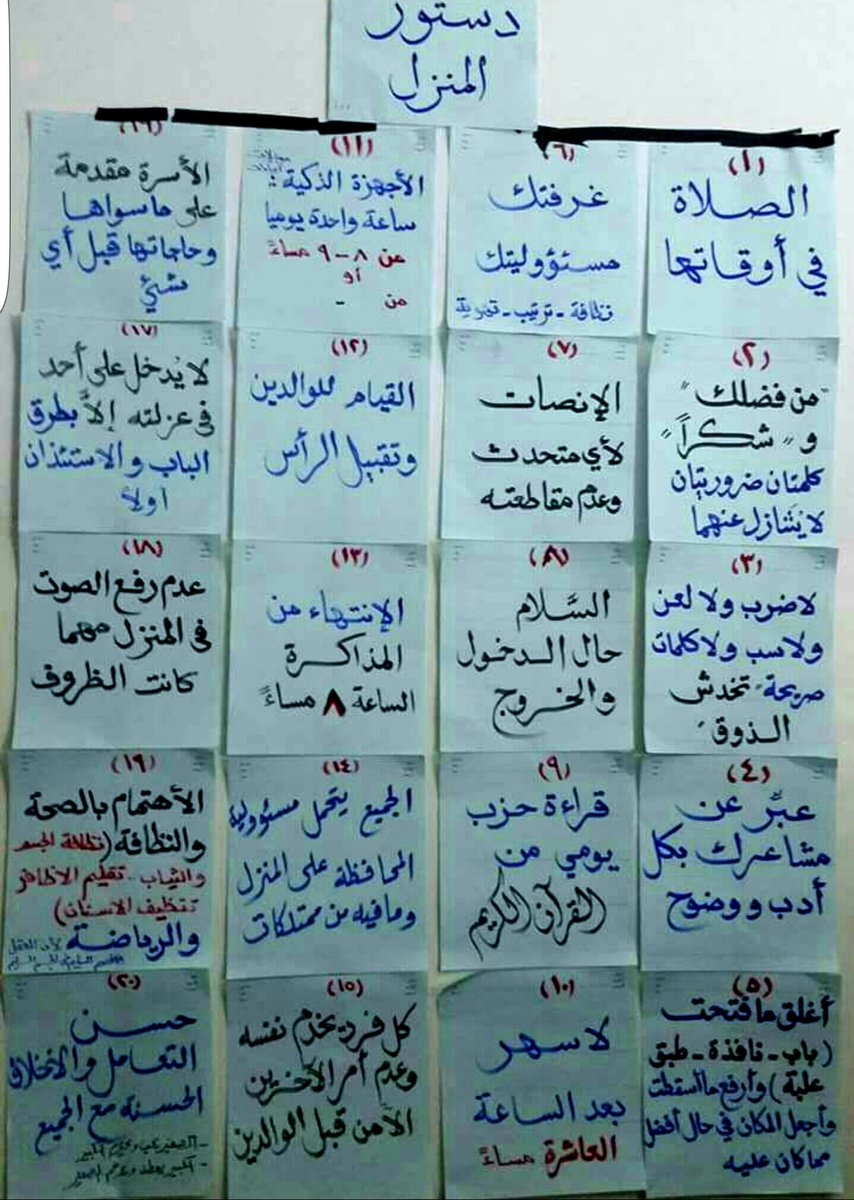 دستور
المنزل
(١)
الصلاة
في أوقاتها
(٢)
"من فضلك"
و "شكراً"
كلمتان ضروريتان
لا يُتنازل عنهما
(٣)
لا ضرب ولا لعن
ولا سب ولا كلمات
صريحة "تخدش
الذوق"
(٤)
عبِّر عن
مشاعرك بكل
أدب ووضوح
(٥)
أغلق ما فتحت
(باب - نافذة - طبق
علبة) وأرفع ما أسقطت
وأجعل المكان في حال أفضل
مما كان عليه
(٦)
غرفتك
مسئووليتك
نظافة - ترتيب - تهوية
(٧)
الإنصات
لأي متحدث
وعدم مقاطعته
(٨)
السَّلام
حال الدخول
والخروج
(٩)
قراءة حزب
يومي من
القرآن الكريم
(١٠)
لا سهر
بعد الساعة
العاشرة مساءً
(١١)
الأجهزة الذكية:
ساعة واحدة يوميا
من ٨ - ٩ مساءً
أو
من -
(١٢)
القيام للوالدين
وتقبيل الرأس
(١٣)
الإنتهاء من
المذاكرة
الساعة ٨ مساءً
(١٤)
الجميع يتحمل مسئوولية
المحافظة على المنزل
وما فيه من ممتلكات
(١٥)
كل فرد يخدم نفسه
وعدم أمر الآخرين
الا من قبل الوالدين
(١٦)
الأسرة مقدمة
على ما سواها
وحاجاتها قبل أي
شئ
(١٧)
لا يُدخل على أحد
في عزلته إلاَّ بطرق
الباب والاستئذان
اولاً
(١٨)
عدم رفع الصوت
في المنزل مهما
كانت الظروف
(١٩)
الأهتمام بالصحة
والنظافة (نظافة الجسم
والثياب - تقليم الاظافر
تنظيف الاسنان)
والرياضة لأن العقل
السليم الجسم السليم
(٢٠)
حسن
التعامل والأخلاق
الحسنة مع الجميع
- الصغير يحب ويحترم الكبير
- الكبير يعطف